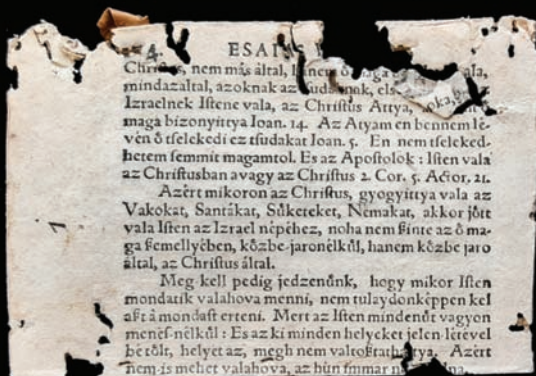 4. ESAIAS
Christus, nem más által, hanem ő maga vala,
mindazáltal, azoknak az tsudaknak, els
Izraelnek Istene vala, az Christus Attya, oka,
maga bizonyittya Ioan. 14. Az Atyam en bennem lé-
vén ő tselekedi ez tsudakat Ioan. 5. En nem tseleked-
hetem semmit magamtol. Es az Apostolok: Isten vala
az Christusban avagy az Christus 2. Cor. 5. Actor. 21.
Azért mikoron az Christus, gyogyittya vala az
Vakokat, Santákat, Sűketeket, Némakat, akkor jött
vala Isten az Izrael népéhez, noha nem szinte az ő ma-
ga szemellyében, kőzbe-jaronélkűl, hanem kőzbe jaro
által, az Christus által.
Meg kell pedig jedzenűnk, hogy mikor Isten
mondatik valahova menni, nem tulaydonkèppen kel
azt à mondast erteni. Mert az Isten mindenűt vagyon
menés-nélkűl: Es az ki minden helyeket jelen-létével
bé tőlt, helyét az, megh nem valtoztathattya. Azért
nem-is mehet valahova, az hűn immar